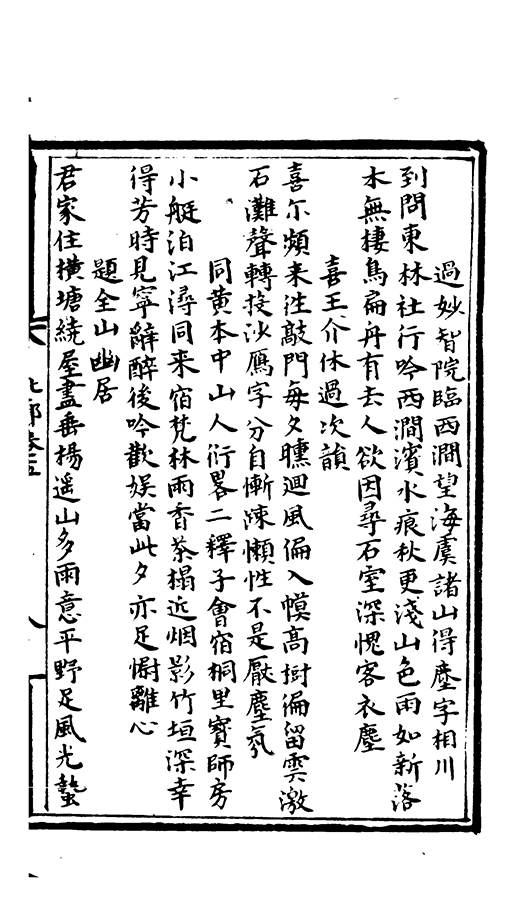 過妙智院臨西澗望海虞諸山得塵字相川
到問東林社行吟西澗濱水痕秋更淺山色雨如新落
木無棲鳥扁舟有去人欲因尋石室深愧客衣塵
喜王介休過次韻
喜尔頻来往敲門每夕曛迴風偏入幙高樹偏留雲激
石灘聲轉投沙鴈字分自慚疎懶性不是厭塵氛
同黄本中山人衍畧二釋子會宿桐里寳師房
小艇泊江潯同来宿梵林雨香茶榻近烟影竹垣深幸
得芳時見寧辭醉後吟歡娱當此夕亦足慰離心
題全山幽居
君家住横塘繞屋盡垂楊遥山多雨意平野足風光蟄